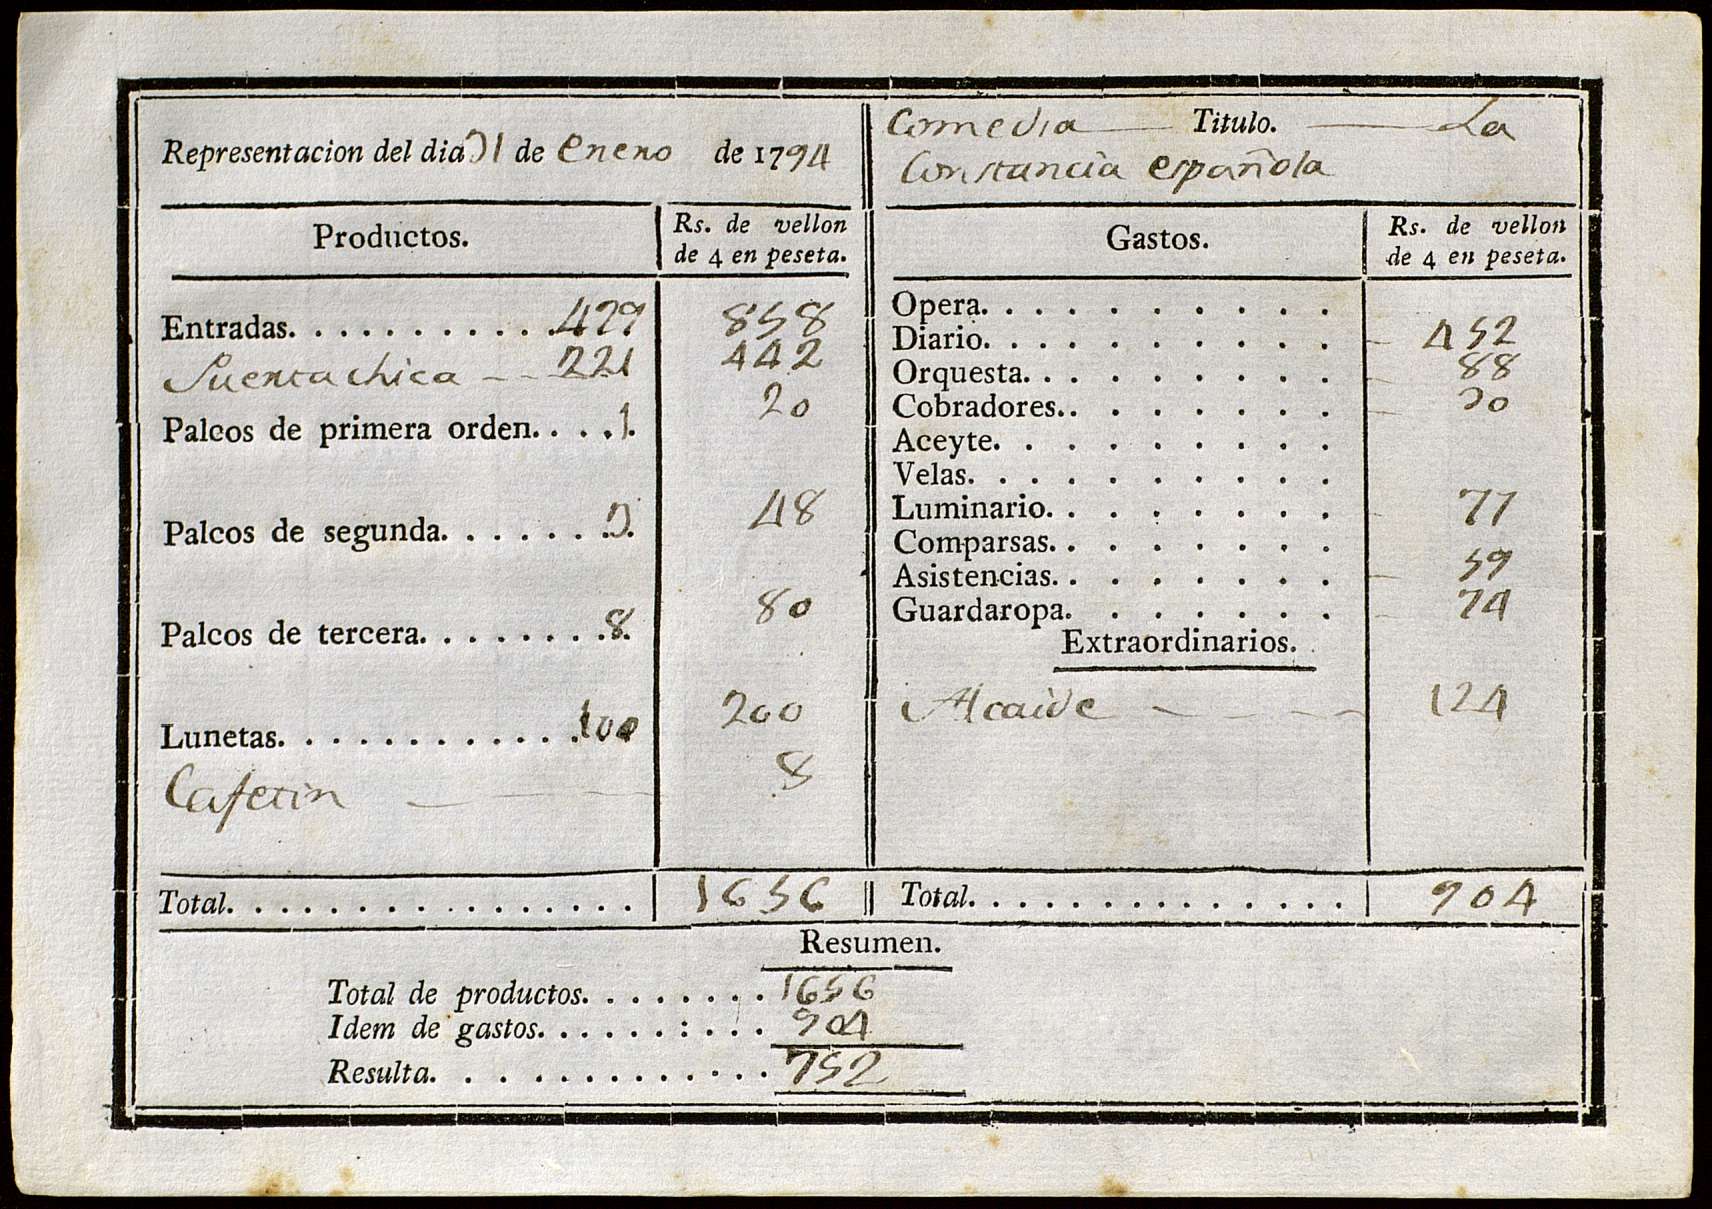 Representacion del dia 31 de enero de 1794
Comedia Titulo. La
Constancia española
Productos. Rs. de vellon
de 4 en peseta.
Entradas. . . . . . . . . . . 429 858
Puerta chica - - 221 442
Palcos de primera orden. . . . 1. 20
Palcos de segunda. . . . . . . 3. 48
Palcos de tercera. . . . . . . . 8. 80
Lunetas. . . . . . . . . . . . 100 200
Cafetin 8
Total. . . . . . . . . . . . . . . . 1656
Gastos. Rs. de vellon
de 4 en peseta.
Opera. . . . . . . . . .
Diario. . . . . . . . . . 452
Orquesta. . . . . . . . . 88
Cobradores. . . . . . . . 30
Aceyte. . . . . . . . . .
Velas. . . . . . . . . . .
Luminario. . . . . . . . 77
Comparsas. . . . . . . .
Asistencias. . . . . . . . 59
Guardaropa. . . . . . . 74
Extraordinarios.
Alcaide - - - - 124
Total. . . . . . . . . . . . . . . 904
Resumen.
Total de productos. . . . . . . . 1656
Idem de gastos. . . . . . : . . . 904
Resulta. . . . . . . . . . . . . 752